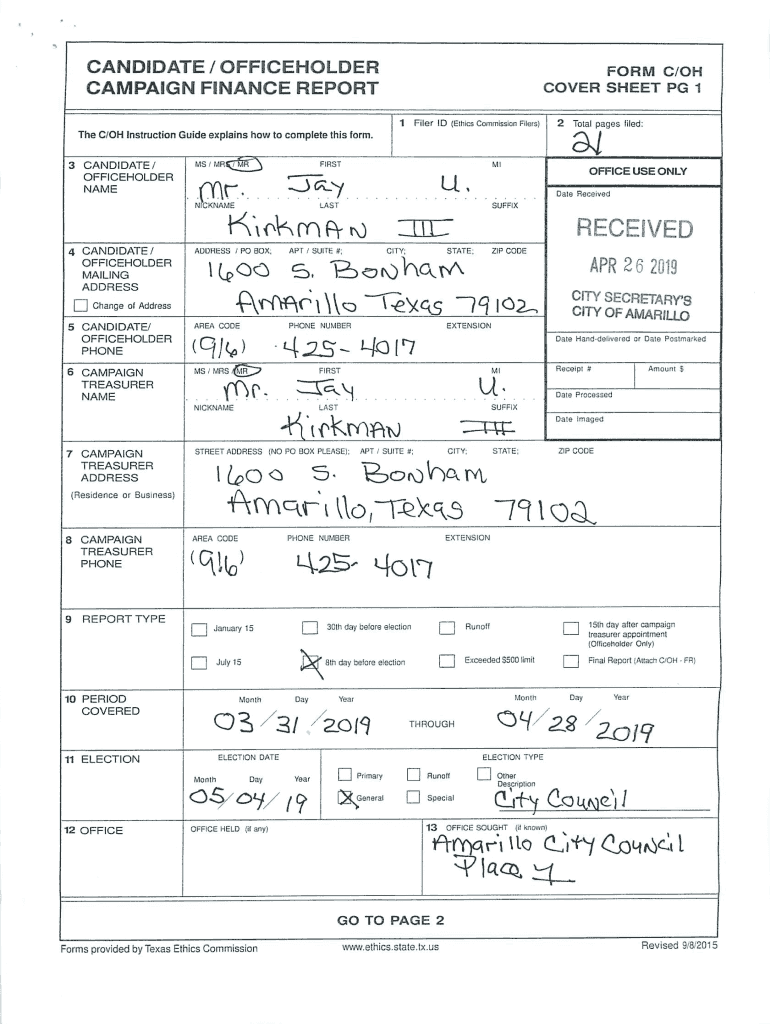 CANDIDATE / OFFICEHOLDER
CAMPAIGN FINANCE REPORT
FORM C/OH
COVER SHEET PG 1
The C/OH Instruction Guide explains how to complete this form.
1 Filer ID (Ethics Commission Filers)
2 Total pages filed:
21
3 CANDIDATE / OFFICEHOLDER NAME
MS / MRS / MR FIRST MI
Mr. Jay U.
NICKNAME LAST SUFFIX
Kirkman III
OFFICE USE ONLY
Date Received
RECEIVED
APR 26 2019
CITY SECRETARY'S
CITY OF AMARILLO
4 CANDIDATE / OFFICEHOLDER MAILING ADDRESS
Change of Address
ADDRESS / PO BOX; APT / SUITE #; CITY; STATE; ZIP CODE
1600 S. Bonham
Amarillo Texas 79102
5 CANDIDATE/ OFFICEHOLDER PHONE
AREA CODE PHONE NUMBER EXTENSION
(916) 425-4017
Date Hand-delivered or Date Postmarked
Receipt # Amount $
Date Processed
Date Imaged
6 CAMPAIGN TREASURER NAME
MS / MRS / MR FIRST MI
Mr. Jay U.
NICKNAME LAST SUFFIX
Kirkman III
7 CAMPAIGN TREASURER ADDRESS
(Residence or Business)
STREET ADDRESS (NO PO BOX PLEASE); APT / SUITE #; CITY; STATE; ZIP CODE
1600 S. Bonham
Amarillo, Texas 79102
8 CAMPAIGN TREASURER PHONE
AREA CODE PHONE NUMBER EXTENSION
(916) 425-4017
9 REPORT TYPE
January 15 30th day before election Runoff 15th day after campaign treasurer appointment (Officeholder Only)
July 15 8th day before election Exceeded $500 limit Final Report (Attach C/OH - FR)
10 PERIOD COVERED
Month Day Year Month Day Year
03/31/2019 THROUGH 04/28/2019
11 ELECTION
ELECTION DATE ELECTION TYPE
Month Day Year
05/04/19
Primary Runoff Other Description
General Special City Council
12 OFFICE
OFFICE HELD (if any)
13 OFFICE SOUGHT (if known)
Amarillo City Council
Place
GO TO PAGE 2
Forms provided by Texas Ethics Commission www.ethics.state.tx.us Revised 9/8/2015